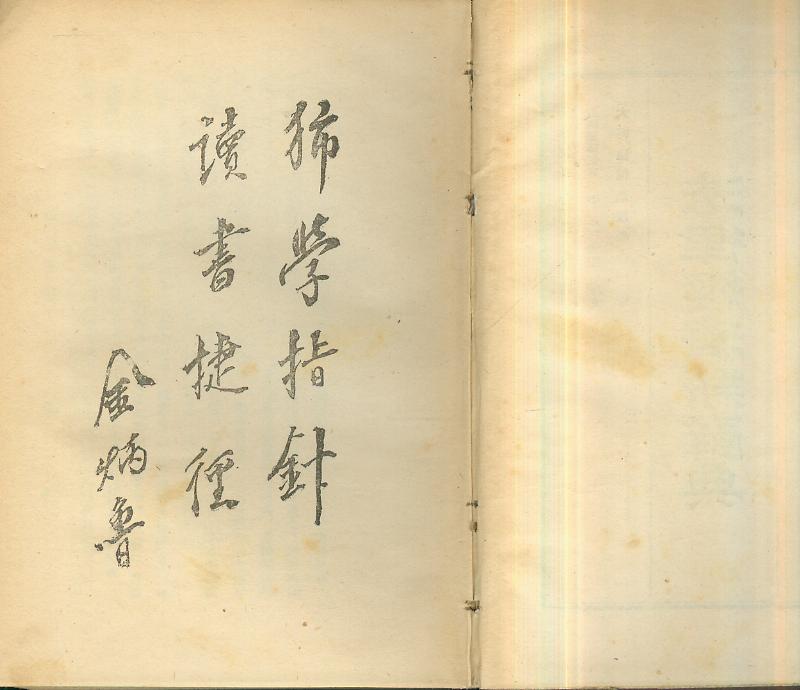 獨學指針
讀書捷徑
金炳魯